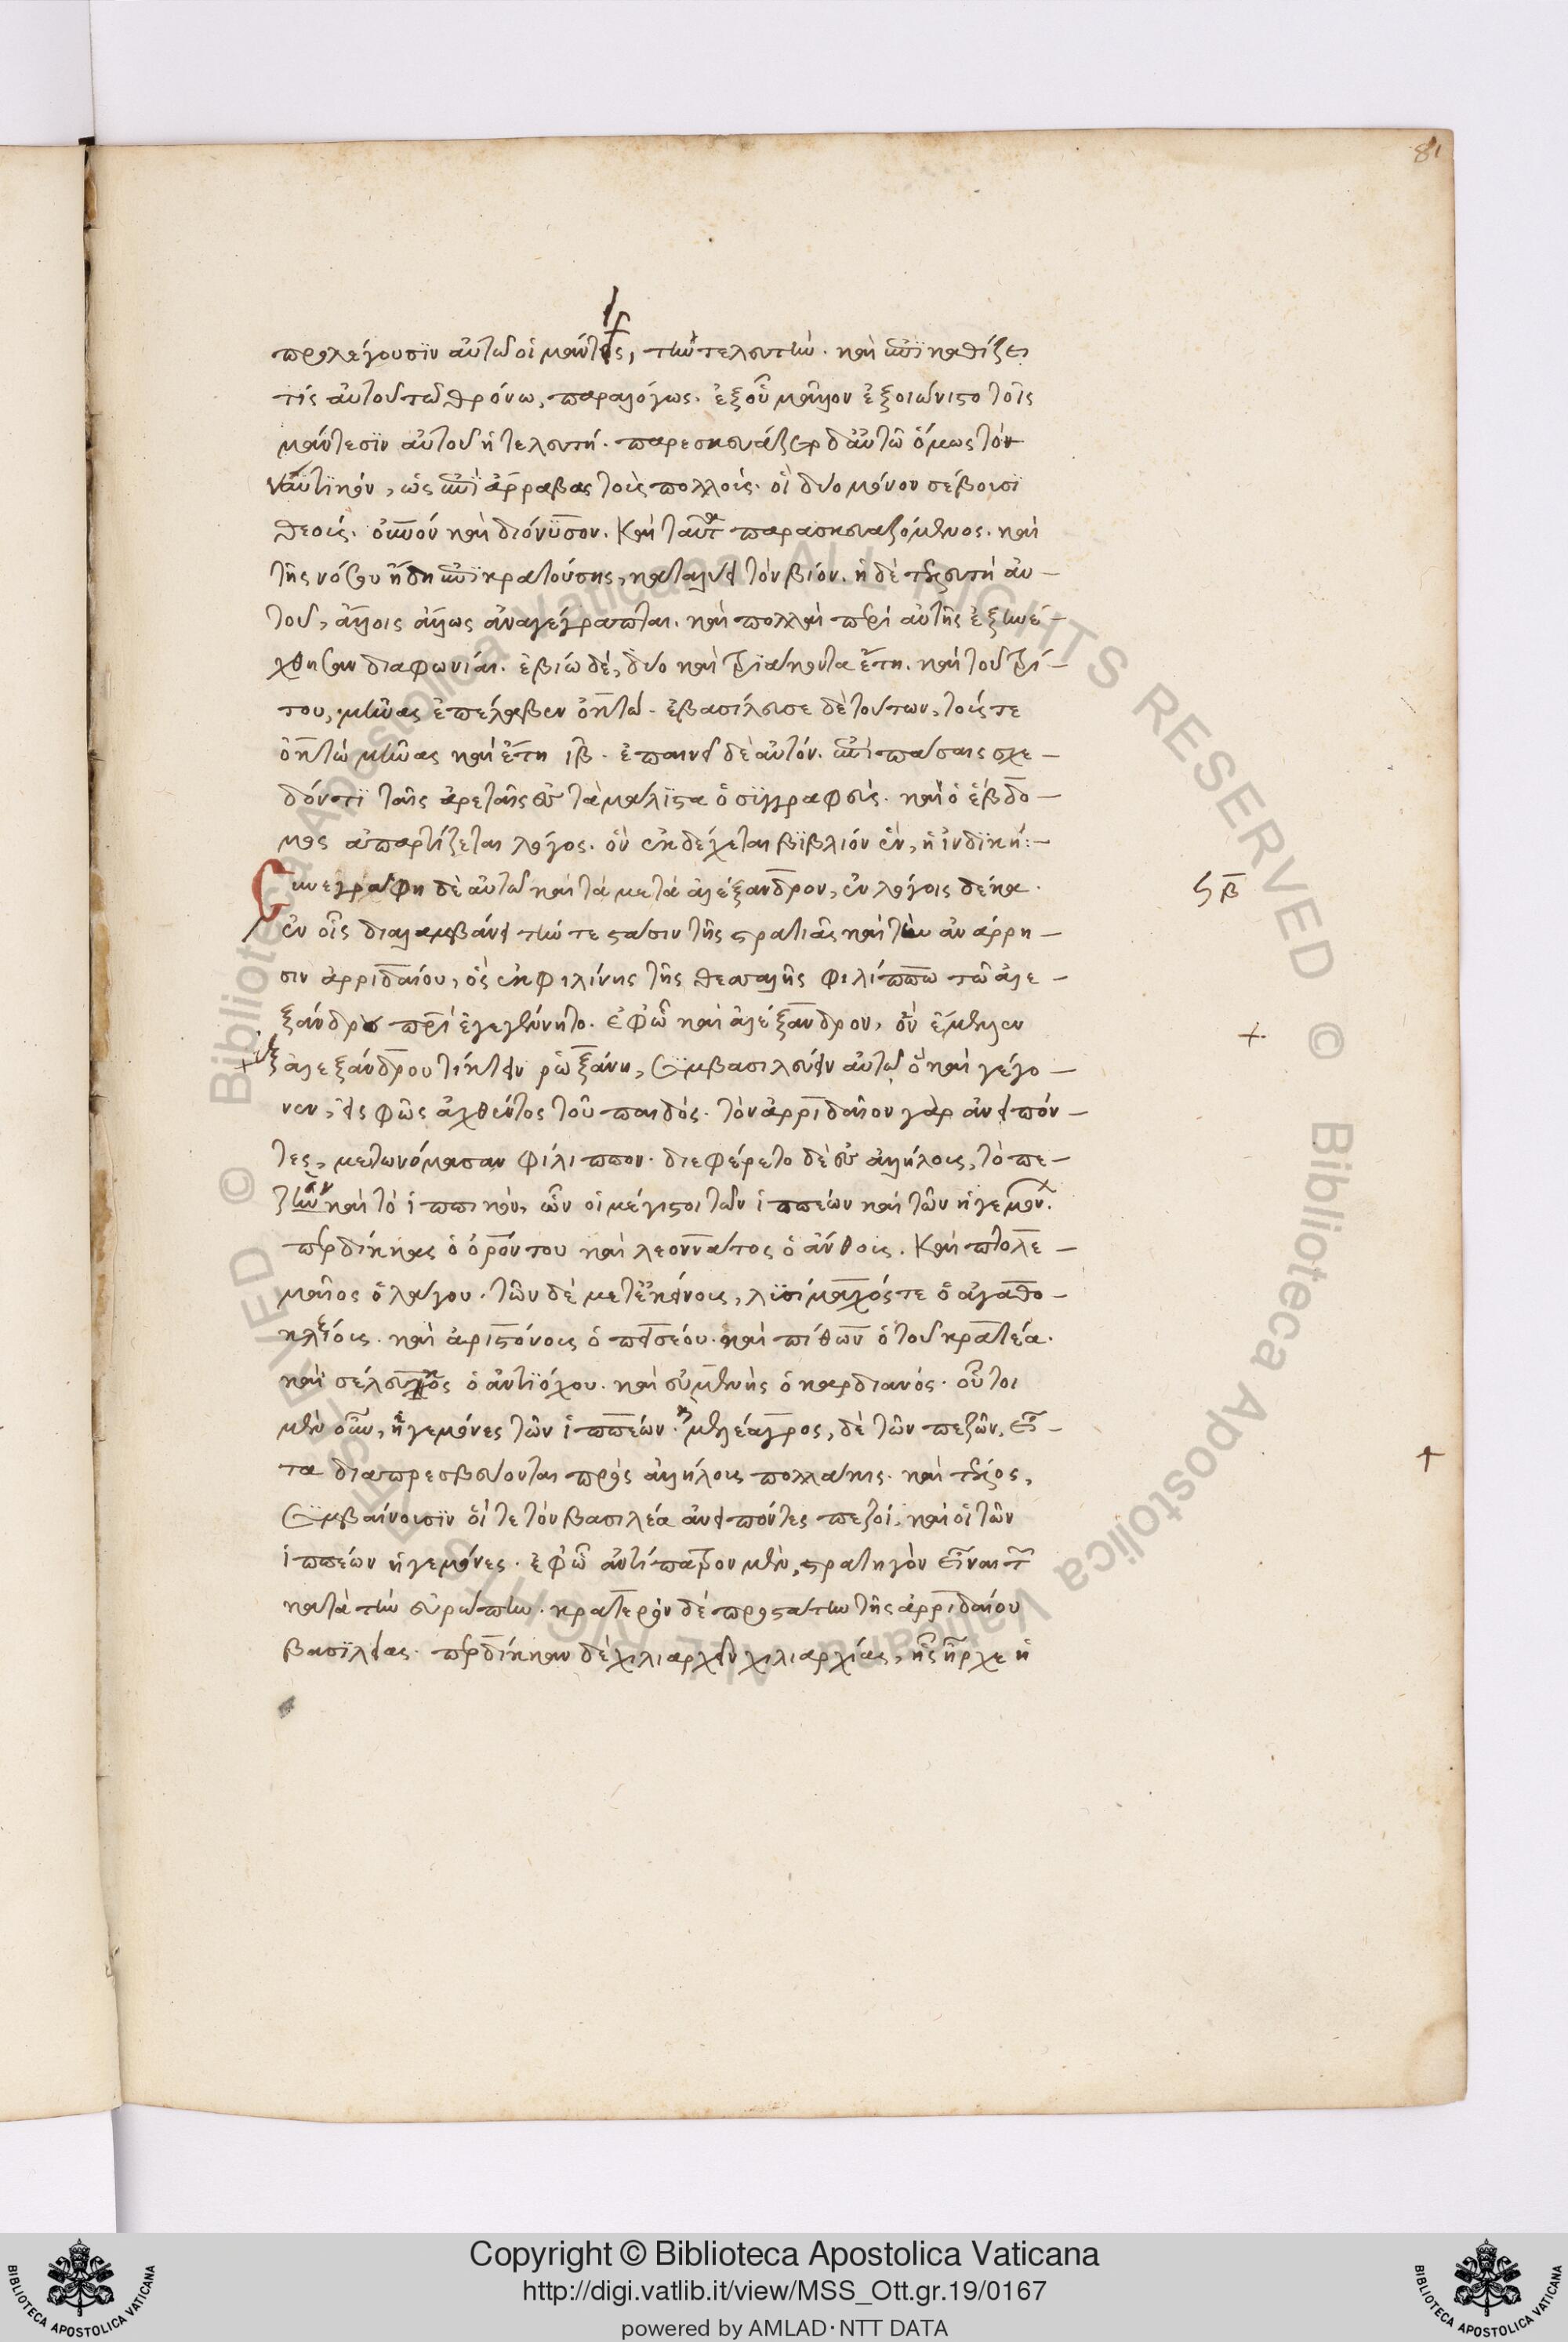 81
προλέγουσϊν αὐτῶ οἱ μάντεις, τὴν τελευτὴν. καὶ ἐπϊκαθίζει
τίς αὐτοῦ τῶ θρόνω, παραλόγως. ἐξοὗ μᾶλλον ἐξοιώνιστο τοῖς
μάντεσϊν αὐτοῦ ἡ τελευτή. παρεσκευάζετο δ᾽αὐτῶ ὅμως τὸν
ναυτϊκὸν, ὡς ἐπῒ ἄρραβας τοὺς πολλοὺς. οἳ δύο μόνον σέβουσϊ
θεοὺς. οὐρανὸν καὶ διόνϋσον. Καὶ ταῦτα παρασκευαζόμενος. καὶ
τῆς νόσου ἤδη ἐπϊκρατούσης, καταλύει τὸν βίον. ἡ δὲ τελευτὴ αὐ-
τοῦ, ἄλλοις ἄλλως ἀναγέγραπται. καὶ πολλαὶ περὶ αὐτῆς ἐξηνέ-
χθησαν διαφωνίαι. ἐβίω δὲ, δύο καὶ τρϊάκοντα ἔτη. καὶ τοῦ τρί-
του, μῆνας ἐπέλαβεν ὀκτώ. ἐβασίλευσε δὲ τούτων, τούς τε
ὀκτὼ μῆνας καὶ ἔτη ιβ. ἐπαινεῖ δὲ αὐτὸν. ἐπὶ πάσαις σχε-
δόν τϊ ταῖς ἀρεταῖς εὖ τὰ μάλϊστα ὁ σϋγγραφεύς. καὶ ὁ ἕβδο-
μος ἀπαρτίζεται λόγος. ὃν ἐκδέχεται βϊβλιόν ἓν, ἡ ἰνδϊκή:-
Συνεγράφη δὲ αὐτῶ καὶ τὰ μετὰ ἀλέξανδρον, ἐν λόγοις δέκα.
ϟβ
ἐν οἷς διαλαμβάνει τήν τε στάσιν τῆς στρατιᾶς καὶ τὴν ἀνάρρη-
σιν ἀρριδαίου, ὃς ἐκ φιλίνης τῆς θεσσαλῆς φιλίππω τῶ ἀλε-
ξάνδρου πατρὶ ἐγεγέννητο. ἐφ᾽ὧ καὶ ἀλέξανδρον, ὃν ἔμελλεν
ἐξ ἀλεξάνδρου τίκτειν ῥωξάνη, Συμβασιλεύειν αὐτῶ, ὃ καὶ γέγο-
νεν, εἰς φῶς ἀχθέντος τοῦ παιδός. τὸν ἀρριδαῖον γὰρ ἀνειπόν-
τες, μετωνόμασαν φίλιππον. διεφέρετο δὲ εὖ ἀλλήλοις, τὸ πε-
ζὸν καὶ τὸ ἱππικὸν, ὧν οἱ μέγιστοι τῶν ἱππέων καὶ τῶν ἡγεμόν.
περδίκκας ὁ ὀρόντου καὶ λεοννάτος ὁ ἄνθους. Καὶ πτολε-
μαῖος ὁ λάγου. τῶν δὲ μετ᾽ἐκείνους, λϋσίμαχός τε ὁ ἀγαθο-
κλέους. καὶ ἀριστόνους ὁ πεισέου. καὶ πίθων ὁ τοῦ κρατέα.
καὶ σέλευκος ὁ ἀντϊόχου. καὶ εὐμένης ὁ καρδιανός. οὗτοι
μὲν οὖν, ἡγεμόνες τῶν ἱππέων. μελέαγρος, δὲ τῶν πεζῶν. εἶ-
τα διαπρεσβεύονται πρὸς ἀλλήλους πολλάκις. καὶ τέλος,
Συμβαίνουσϊν οἵ τε τὸν βασιλέα ἀνειπόντες πεζοί, καὶ οἱ τῶν
ἱππέων ἡγεμόνες. ἐφ᾽ὧ ἀντίπατρον μὲν, στρατηγὸν εἶναι τῶν
κατὰ τὴν εὐρώπην. κρατερὸν δὲ προστάτην τῆς ἀρριδαίου
βασϊλείας. περδίκκαν δὲ χιλιαρχεῖν χιλιαρχίας, ἧς ἦρχε ἡ
Copyright © Biblioteca Apostolica Vaticana
http://digi.vatlib.it/view/MSS_Ott.gr.19/0167
powered by AMLAD·NTT DATA
BIBLIOTECA APOSTOLICA VATICANA
BIBLIOTECA APOSTOLICA VATICANA
© Biblioteca Apostolica Vaticana ALL RIGHTS RESERVED © Biblioteca Apostolica Vaticana ALL RIGHTS RESERVED